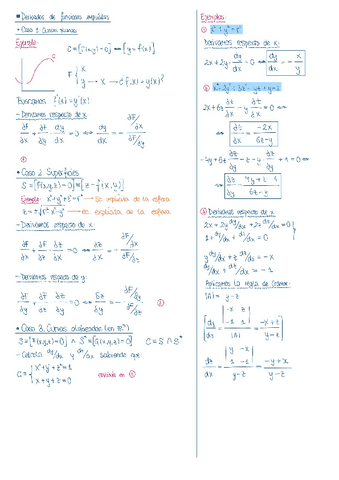 ▪ Derivadas de funciones implícitas
• Caso 1: Curvas planas
Ejemplo:
C = [F(x,y)=0] ≡ [y = f(x)]
F { x
y → x → ¿f(x) = y(x)?
Buscamos f'(x) = y'(x)
- Derivamos respecto de x
①
• Caso 2: Superficies
S = [F(x,y,z)=0] ≡ [z = f(x,y)]
Ejemplo: x²+y²+z²=r² → Ec implícita de la esfera
explícita de la esfera
- Derivamos respecto de x:
- Derivamos respecto de y:
②
• Caso 3: Curvas alabeadas (en ℝ³)
S = [F(x,y,z)=0] ∧ S* = [G(x,y,z)=0] C = S ∩ S*
- Calcula dy/dx y dz/dx sabiendo que:
C = { x²+y²+z²=1
x+y+z=0
③
Ejemplos:
① x²+y²=r²
Derivamos respecto de x:
2x + 2y · dy/dx = 0 → dy/dx = -x/y
②
2x + 6z ∂z/∂x - y ∂z/∂x = 0 ⇔
⇔ ∂z/∂x = -2x / 6z-y
-4y + 6z ∂z/∂y - z - y · ∂z/∂y + 1 = 0 ⇔
③ Derivamos respecto de x
2x + 2y dy/dx + 2z dz/dx = 0
1 + dy/dx + dz/dx = 0
y dy/dx + z dz/dx = -x
dy/dx + dz/dx = -1
Aplicamos la regla de Cramer:
|A| = y-z
dy/dx = |-x z; -1 1| / |A| = -x+z / y-z
dz/dx = |y -x; 1 -1| / y-z = -y+x / y-z